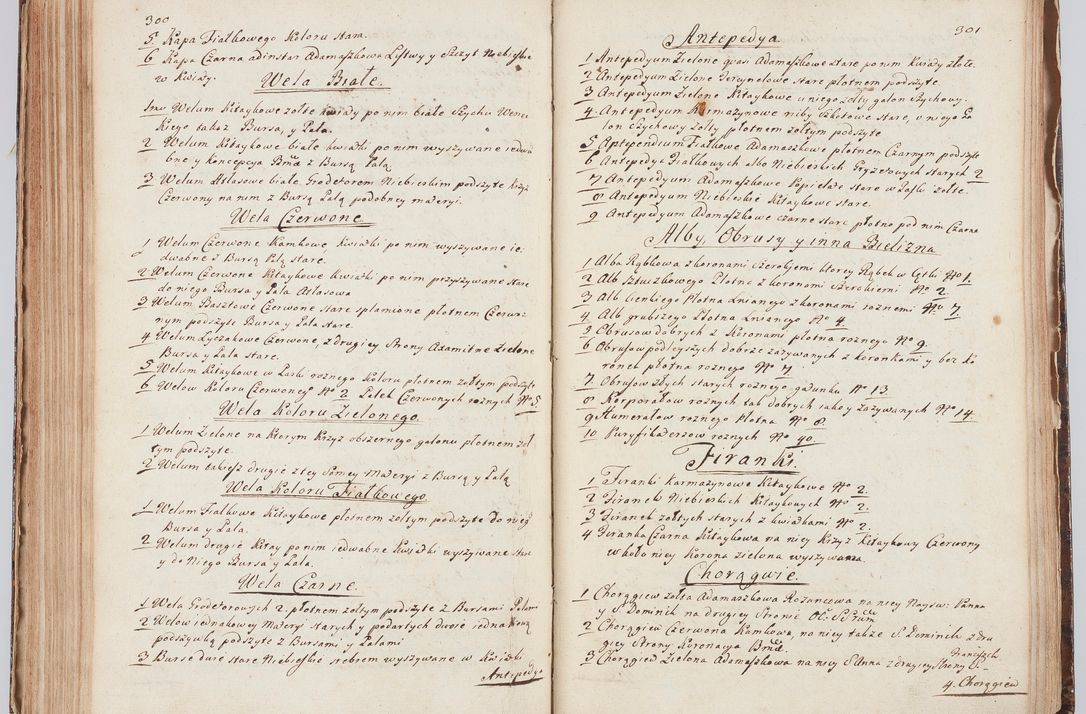 300
5. Kapa Fiałkowego Koloru stara.
6 Kapa Czarna adinstar Adamaszkowa Listwy y Szczyt Niebieskie
w Kwiaty.
Wela Białe.
1mo Welum Kitaykowe zołte kwiaty po nim białe Szychu Wenec
kiego takaz Bursa, y Pala.
2 Welum Kitaykowe białe kwiatki po nim wyszywane iedwa
bne y Koncepcya z Bursą Palą
3 Welum Atlasowe białe Grodetorem Niebieskim podszyte Krzyz
Czerwony na nim z Bursą Palą podobney materyi.
Wela Czerwone.
1 Welum Czerwone Kamkowe, kwiatki po nim wyszywane ie
dwabne z Bursą Palą stare.
2 Welum Czerwone Kitaykowe Kwiatki po nim przyszywane stare
do niego Bursa y Pala Atlasowa
3 Welum Basztowe Czerwone stare splamione płotnem Czerwo
nym podszyte Bursa y Pala stare.
4 Welum Łyczakowe Czerwone, z drugiey Strony Axamitne Zielone
Bursa y Pala stare.
5 Welum Kitaykowe w Paski roznego Koloru płotnem zołtym podszyte
6 Welow Koloru Czerwonego No 2 Palek Czerwonych roznych No 5
Wela Koloru Zielonego.
1 Welum Zielone na Ktorym Krzyz obszernego galonu płotnem zoł
tym podszyte.
2 Welum takiesz drugie z tey Samey Materyi z Bursą y Palą
Wela Koloru Fiałkowego.
1 Welum Fiałkowe Kitaykowe płotnem zołtym podszyte do niego
Bursa y Pala.
2 Welum drugie Kitay po nim iedwabne Kwiatki wyszywane stare
y do Niego Bursa y Pala.
Wela Czarne.
1 Wela Grodetorowych 2. płotnem zołtym podszyte z Bursami Palami
2 Welow iednakowey Materyi starych y podartych dwoie iedna
podszywką podszyte z Bursami y Palami
3 Burse dwie stare Niebieskie srebrem wyszywane w Kwiatki
Antepedya
301
Antepedya
1 Antepedyum Zielone quasi Adamaszkowe stare po nim Kwiaty złote.
2 Antepedyum Zielone Tercynelowe stare płotnem podszyte.
3 Antepedyum Zielone Kitaykowe u niego zołty galon Szychowy.
4. Antepedyum Karmazynowe niby Szkotowe stare, u niego Ga
lon Szychowy zołty płotnem zołtym podszyte
5 Antependium Fiałkowe Adamaszkowe płotnem Czarnym podszyte
6 Antepedya Fiałkowych albo Niebieskich Gryzetowych starych 2
7 Antepedyum Adamaszkowe Popielate stare w Paski zołte.
8 Antepedyum Niebieskie Kitaykowe stare.
9 Antepedyum Adamaszkowe czarne stare płotno pod nim Czarne
Alby, Obrusy y inna Bielizna
1 Alba Rąbkowa z koronami Szerokiemi Ktorey Rąbek w Cętki No 1.
2 Alb Sztuczkowego Płotna z koronami Szerokiemi No 2.
3 Alb Cienkiego Płotna Lnianego z koronami roznemi No 7
4. Alb grubszego Płotna Lnianego No 4.
5 Obrusow dobrych z Koronami płotna roznego No 9.
6 Obrusow podleyszych dobrze zazywanych z koronkami y bez Ko
ronek płotna roznego No 7
7. Obrusow złych starych roznego gatunku No 13.
8 Korporałow roznych tak dobrych iako y zazywanych No 14.
9 Humerałow roznego Płotna No 8.
10 Puryfikaterzow roznych No 40.
Firanki.
1 Firanki Karmazynowe Kitaykowe No 2.
2 Firanek Niebieskich Kitaykowych No 2.
3 Firanek zołtych starych z kwiatkami No 2.
4 Firanka Czarna Kitaykowa na niey Krzyz Kitaykowy Czerwony
w koło niey Korona zielona wyszywana.
Chorągwie.
1 Chorągiew zołta Adamaszkowa Rozancowa na niey Nayśw: Panna
y S. Dominik na drugiey Stronie
2 Chorągiew Czerwona Kamkowa, na niey także S. Dominik z dru
giey Strony Koronacya
3 Chorągiew Zielona Adamaszkowa na niey S. Anna z drugiey Strony S. Franciszek
4. Chorągiew